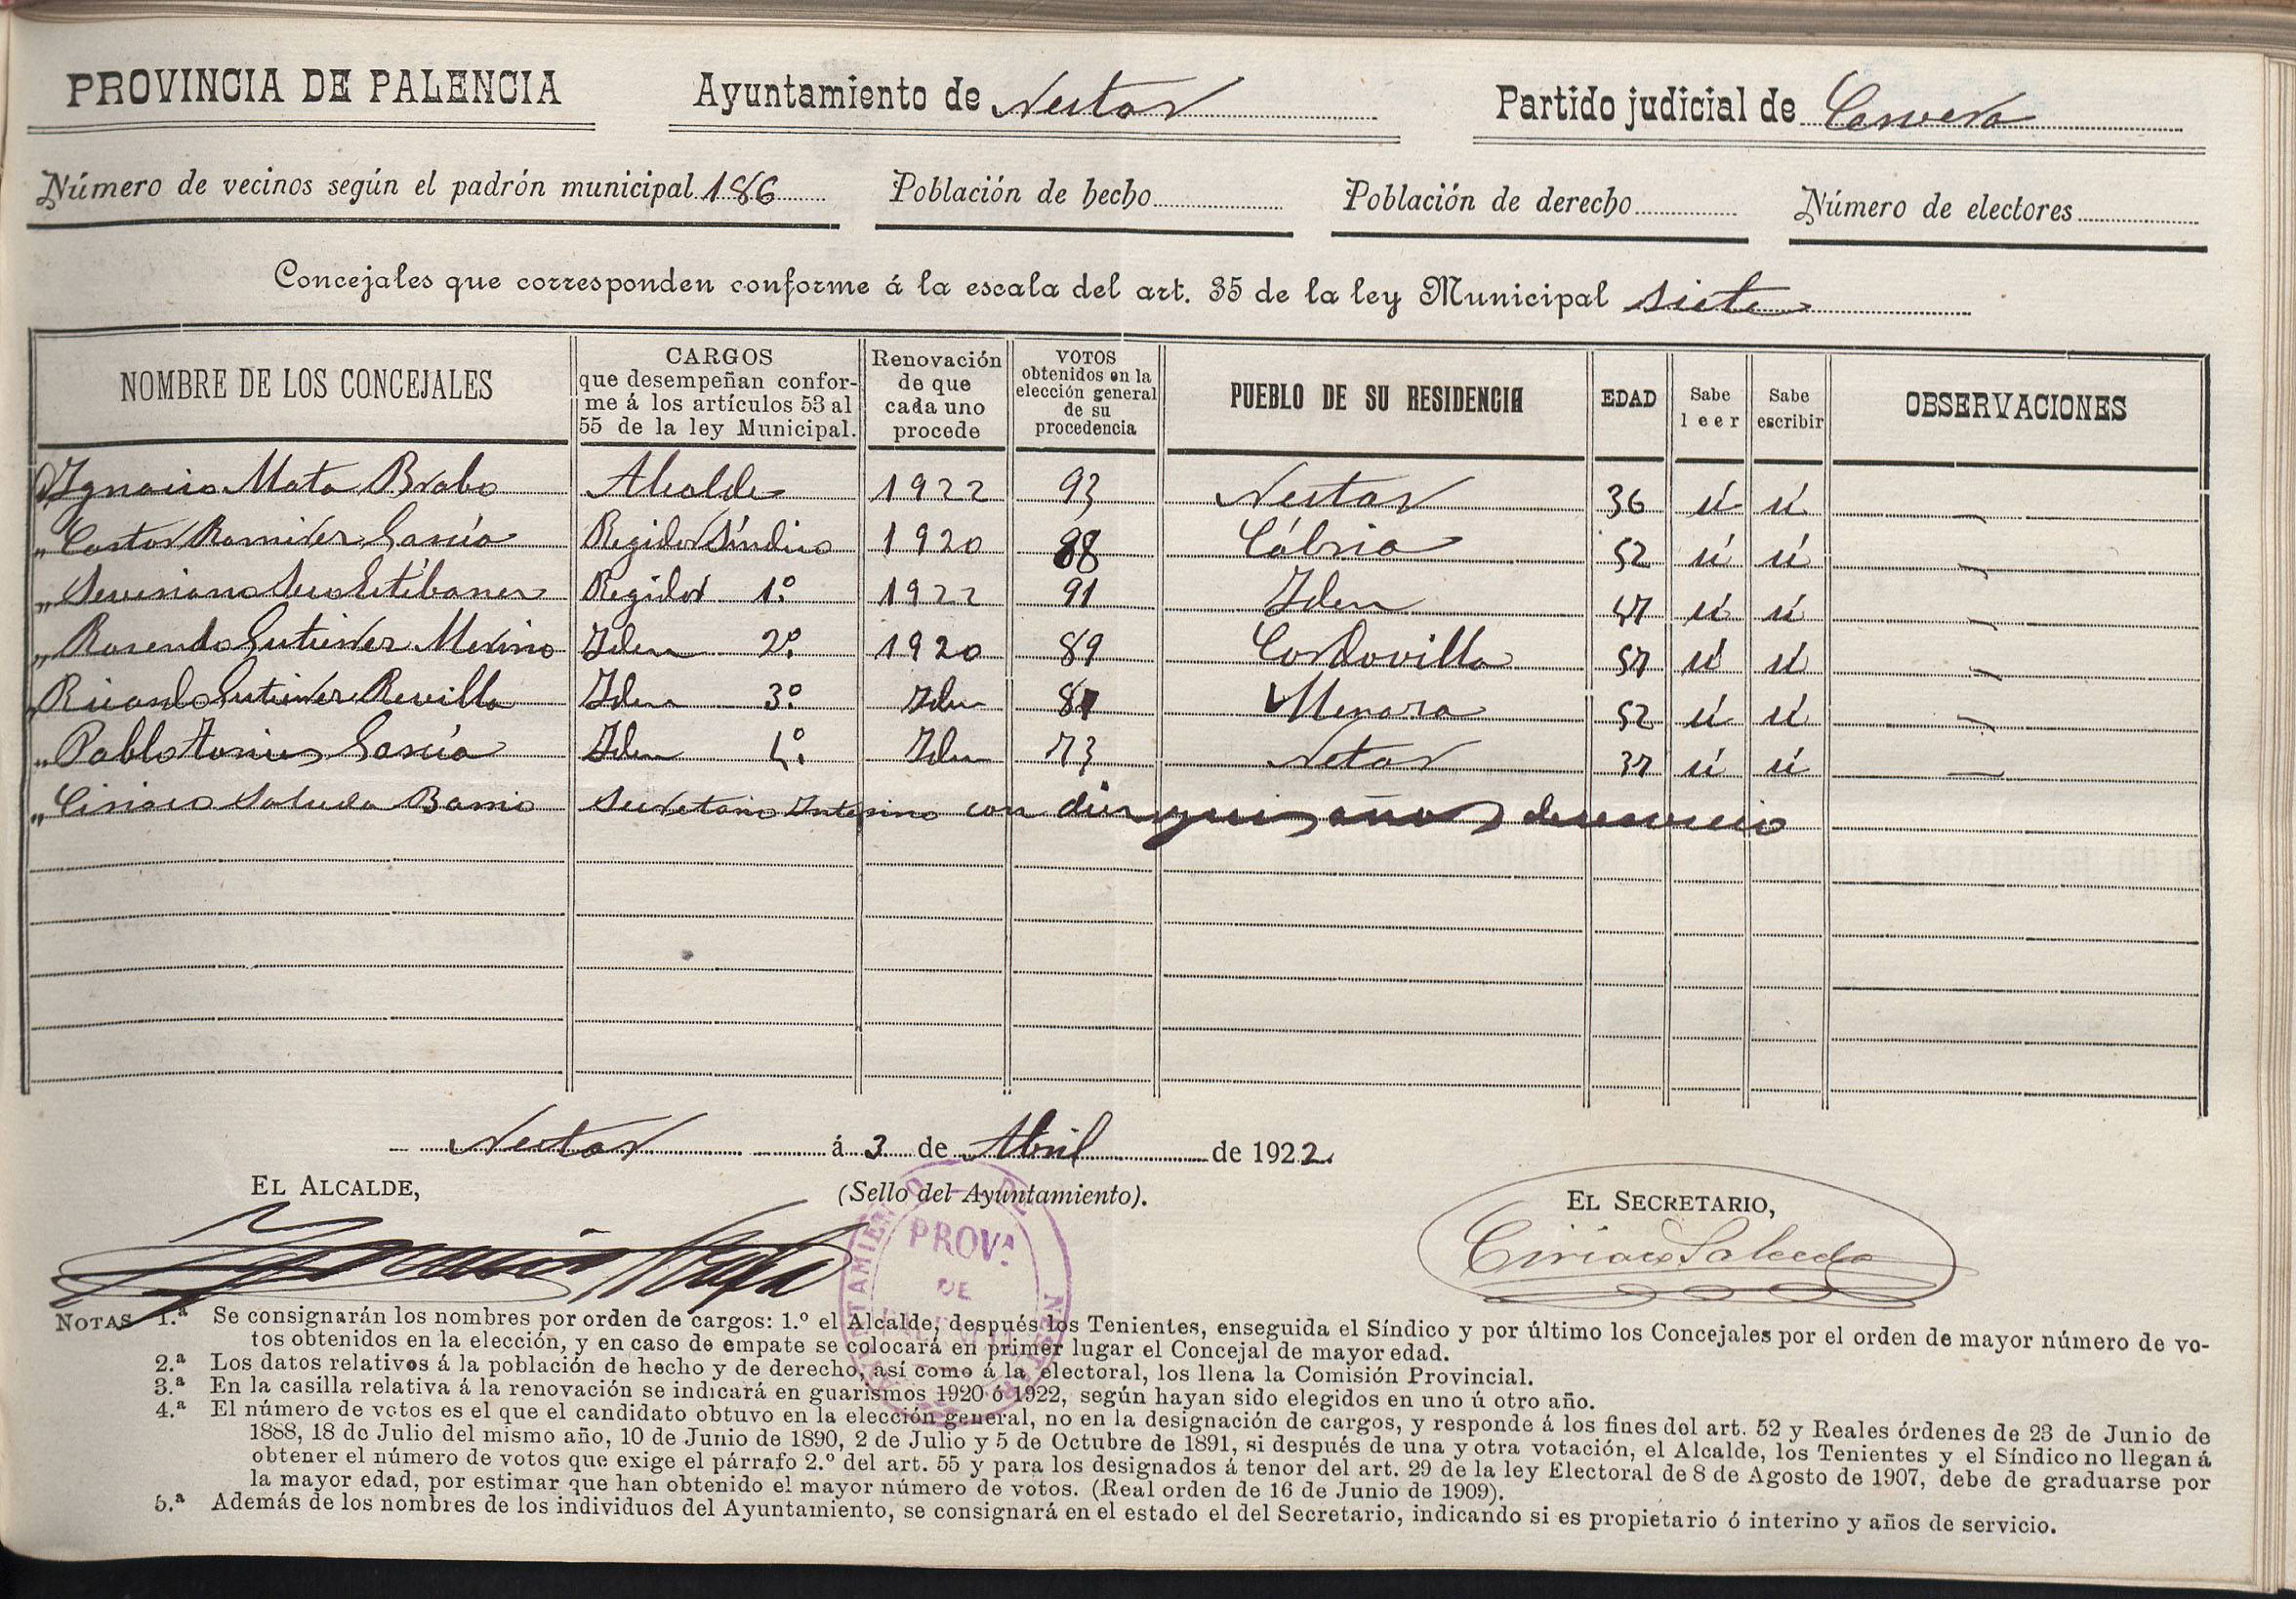 PROVINCIA DE PALENCIA Ayuntamiento de Nestar Partido judicial de Cervera
Número de vecinos según el padrón municipal 186 Población de hecho Población de derecho Número de electores
Concejales que corresponden conforme á la escala del art. 35 de la ley Municipal siete
NOMBRE DE LOS CONCEJALES
CARGOS
que desempeñan confor-
me á los artículos 53 al
55 de la ley Municipal.
Renovación
de que
cada uno
procede
VOTOS
obtenidos en la
elección general
de su
procedencia
PUEBLO DE SU RESIDENCIA
EDAD
Sabe
leer
Sabe
escribir
OBSERVACIONES
Ignacio Mata Brabo Alcalde 1922 93 Nestar 36 sí sí —
„ Castor Ramirez García Regidor Síndico 1920 88 Cábria 52 sí sí —
„ Severiano Seco Estébanez Regidor 1º 1922 91 Idem 47 sí sí —
„ Rosendo Gutierrez Merino Idem 2º 1920 89 Cordovilla 57 sí sí —
„ Ricardo Gutierrez Revilla Idem 3º Idem 81 Menaza 52 sí sí —
„ Pablo García Idem 4º Idem 73 Netar 37 sí sí —
„ Ciriaco Salceda Barrio Secretario Interino con diez y seis años de servicio
Nestar á 3 de Abril de 1922.
EL ALCALDE, (Sello del Ayuntamiento). EL SECRETARIO,
Ignacio Mata
PROVª
DE
Ciriaco Salceda
NOTAS 1.ª Se consignarán los nombres por orden de cargos: 1.º el Alcalde, después los Tenientes, enseguida el Síndico y por último los Concejales por el orden de mayor número de vo-
tos obtenidos en la elección, y en caso de empate se colocará en primer lugar el Concejal de mayor edad.
2.ª Los datos relativos á la población de hecho y de derecho, así como á la electoral, los llena la Comisión Provincial.
3.ª En la casilla relativa á la renovación se indicará en guarismos 1920 ó 1922, según hayan sido elegidos en uno ú otro año.
4.ª El número de votos es el que el candidato obtuvo en la elección general, no en la designación de cargos, y responde á los fines del art. 52 y Reales órdenes de 23 de Junio de
1888, 18 de Julio del mismo año, 10 de Junio de 1890, 2 de Julio y 5 de Octubre de 1891, si después de una y otra votación, el Alcalde, los Tenientes y el Síndico no llegan á
obtener el número de votos que exige el párrafo 2.º del art. 55 y para los designados á tenor del art. 29 de la ley Electoral de 8 de Agosto de 1907, debe de graduarse por
la mayor edad, por estimar que han obtenido el mayor número de votos. (Real orden de 16 de Junio de 1909).
5.ª Además de los nombres de los individuos del Ayuntamiento, se consignará en el estado el del Secretario, indicando si es propietario ó interino y años de servicio.